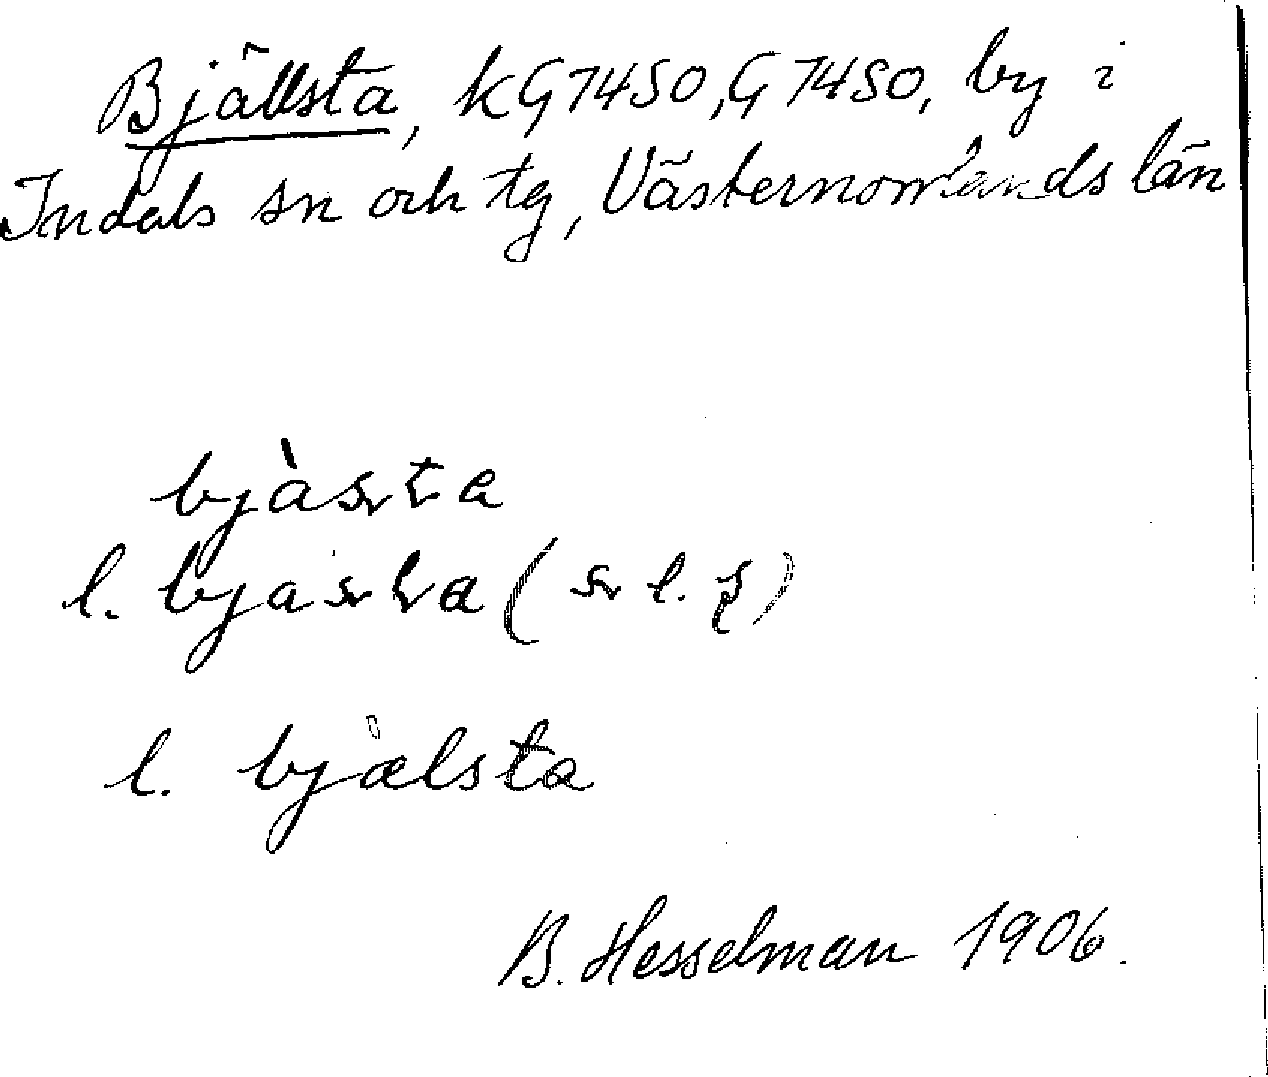 Bjällsta, KG74SO, G74SO, by i
Indals sn och tg, Västernorrlands län
bjàsta
l. bjasta (s l. ʂ)
l. bjàlsta
B. Hesselman 1906.